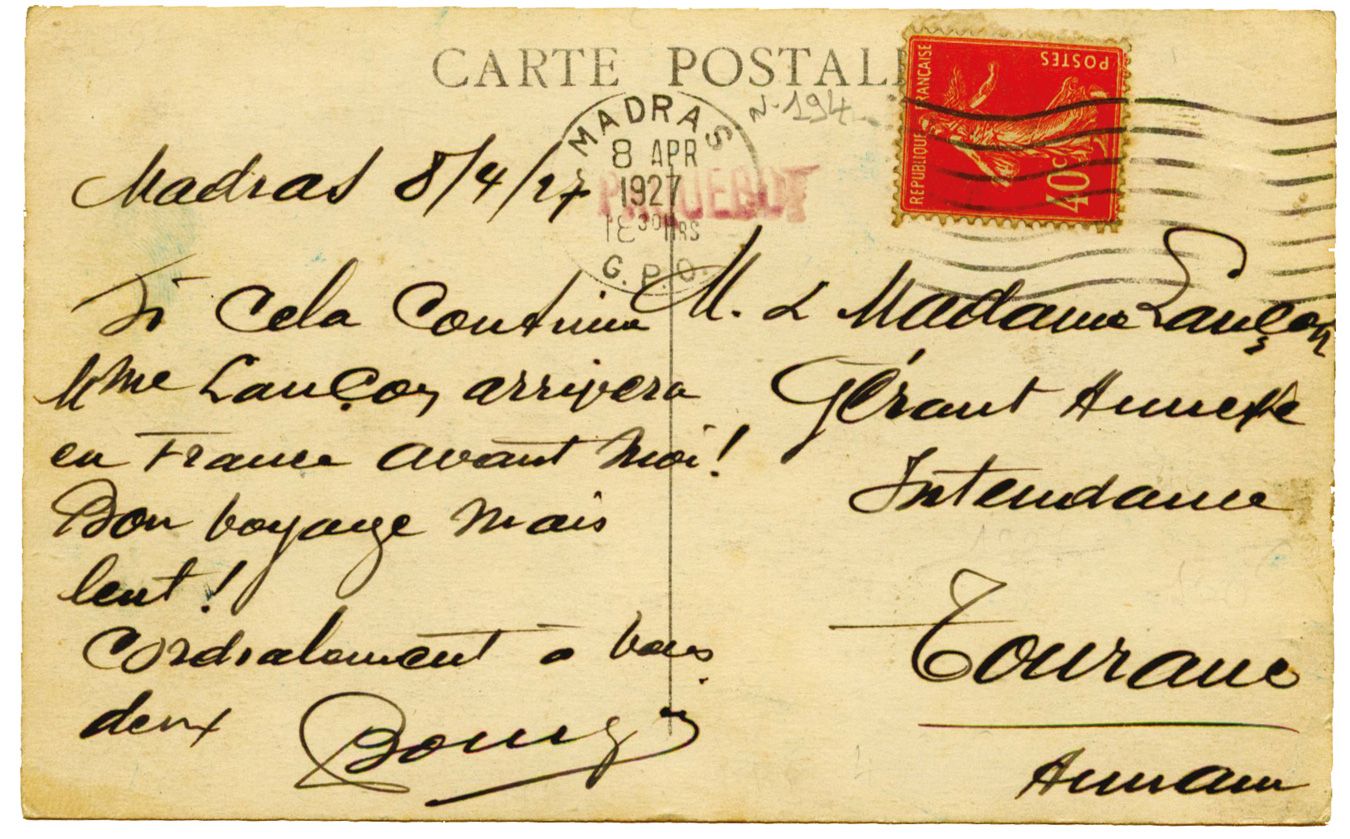 CARTE POSTALE
N. 194
REPUBLIQUE FRANCAISE
POSTES
40c
MADRAS
8 APR
1927
18 30 HRS
G.P.O.
PAQUEBOT
Madras 8/4/27
Si cela continue
Mme Lançon arrivera
en France avant moi!
Bon voyage mais
lent!
Cordialement à vous
deux
M. & Madame Lançon
Gérant Annexe
Intendance
Tourane
Annam